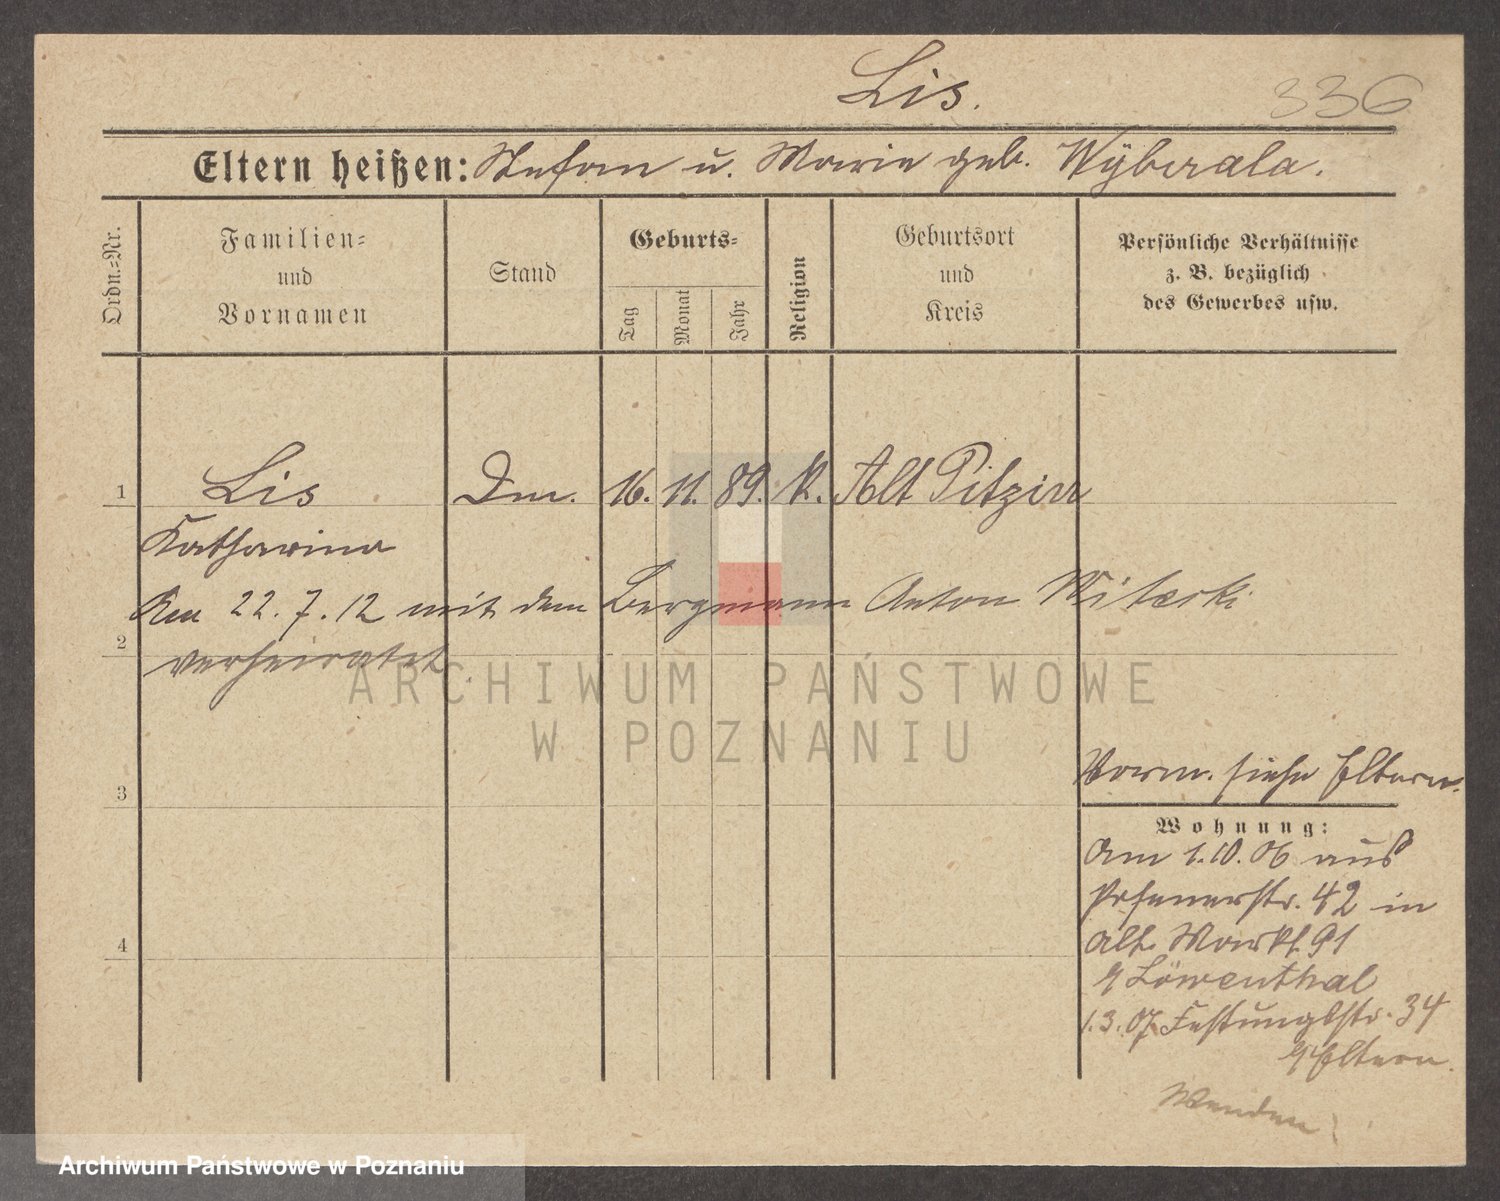 Lis. 336
Eltern heißen: Stefan u. Marie geb. Wyberala.
Ordn.-Nr.
Familien-
und
Vornamen
Stand
Geburts-
Tag
Monat
Jahr
Religion
Geburtsort
und
Kreis
Persönliche Verhältnisse
z. B. bezüglich
des Gewerbes usw.
1 Lis 16. 11. 89. k. Alt
Katharina
Am 22. 7. 12 mit dem Bergmann Anton Witecki
2
verheiratet.
Vorm. siehe Eltern.
3
Wohnung:
Am 1.10.06 aus
Posenerstr. 42 in
Alt. Markt 91
b/ Löwenthal
1.3.07. Festungsstr. 34
b/ Eltern.
4
Wenden!
ARCHIWUM PAŃSTWOWE
W POZNANIU
Archiwum Państwowe w Poznaniu